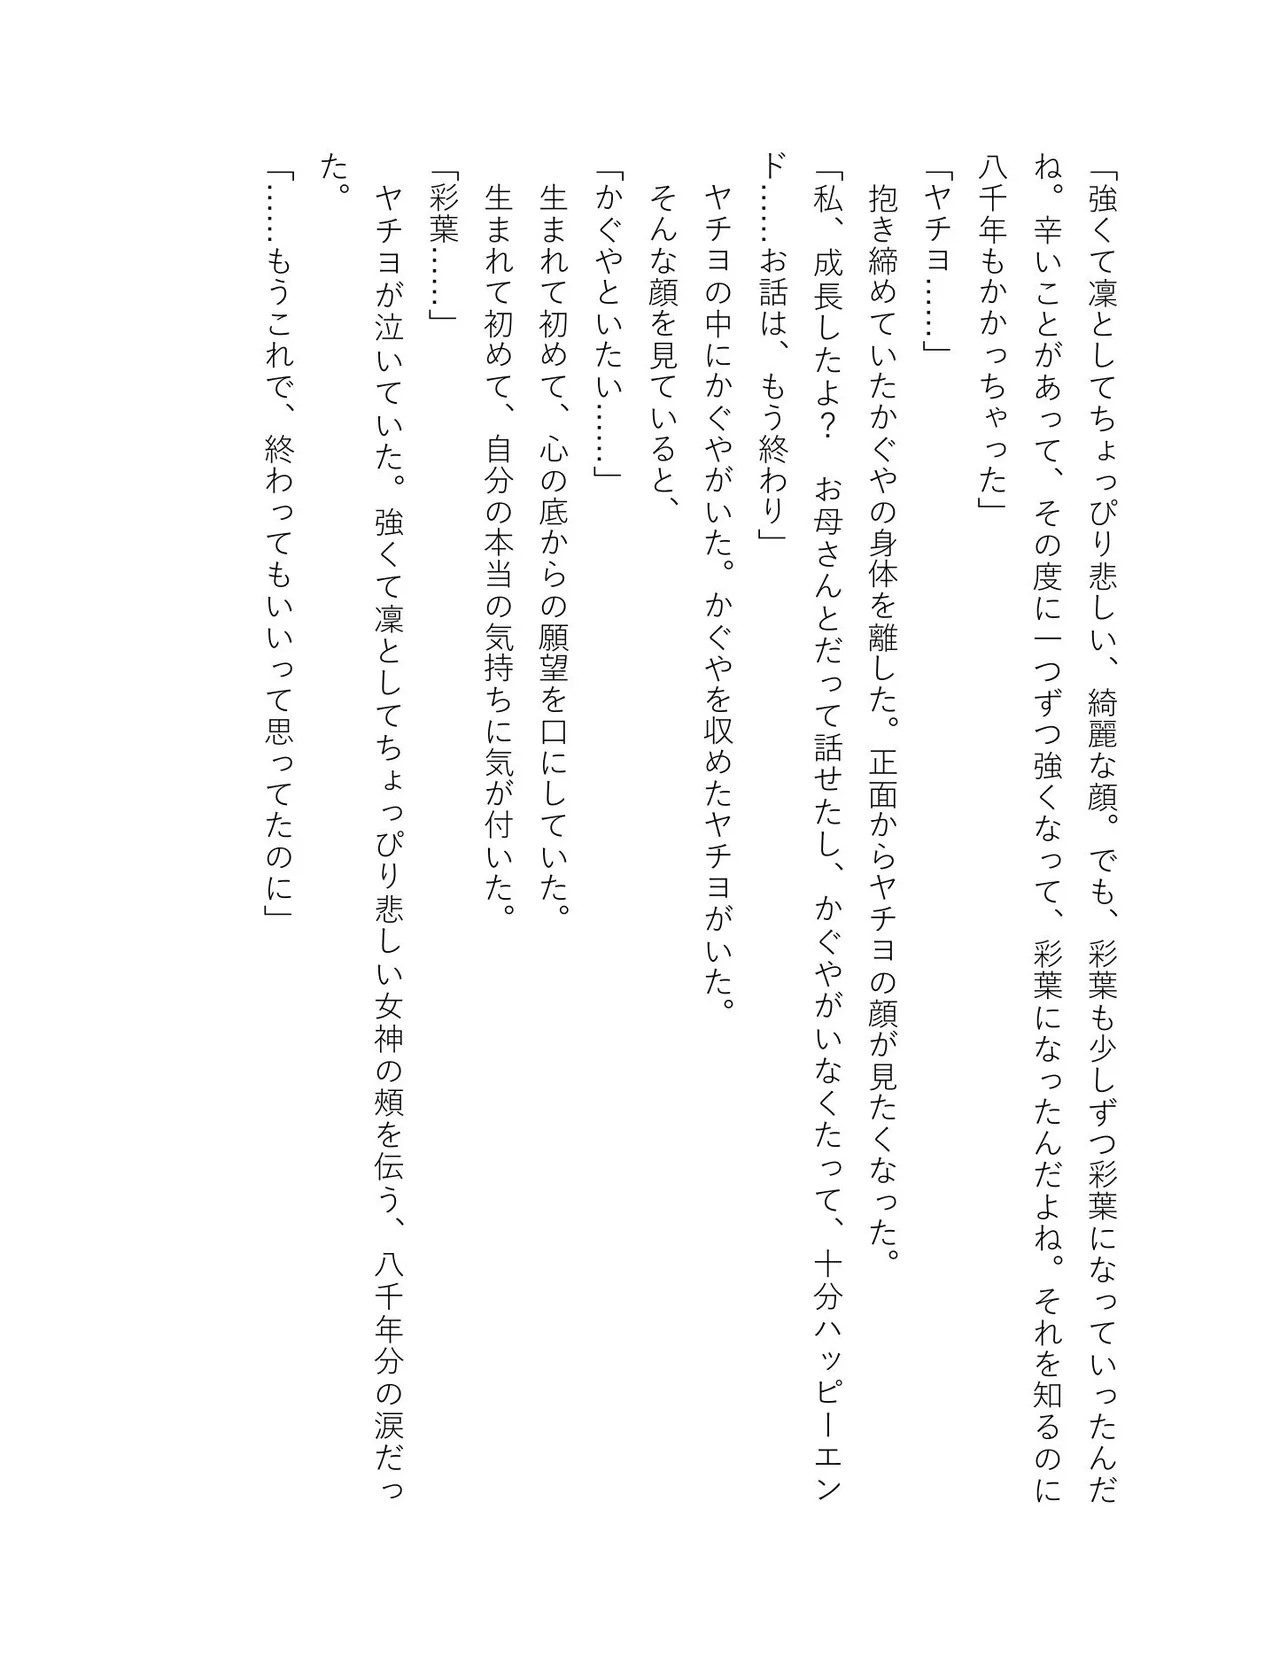 「強くて凜としてちょっぴり悲しい、綺麗な顔。でも、彩葉も少しずつ彩葉になっていったんだ
ね。辛いことがあって、その度に一つずつ強くなって、彩葉になったんだよね。それを知るのに
八千年もかかっちゃった」
「ヤチヨ……」
　抱き締めていたかぐやの身体を離した。正面からヤチヨの顔が見たくなった。
「私、成長したよ？　お母さんとだって話せたし、かぐやがいなくたって、十分ハッピーエン
ド……お話は、もう終わり」
　ヤチヨの中にかぐやがいた。かぐやを収めたヤチヨがいた。
　そんな顔を見ていると、
「かぐやといたい……」
　生まれて初めて、心の底からの願望を口にしていた。
　生まれて初めて、自分の本当の気持ちに気が付いた。
「彩葉……」
　ヤチヨが泣いていた。強くて凜としてちょっぴり悲しい女神の頰を伝う、八千年分の涙だっ
た。
「……もうこれで、終わってもいいって思ってたのに」